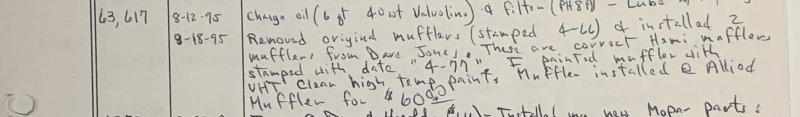 63,617 8-12-95 Change oil (6 qt 40 wt Valvoline) & filter (PH8A) - Lube
8-18-95 Removed original mufflers (stamped 4-66) & installed 2
mufflers from Dave Jones. These are correct Hemi mufflers
stamped with date "4-77" I painted muffler with
VHT clean high temp paint. Muffler installed @ Allied
Muffler for $60.00
Installed new Mopar parts: